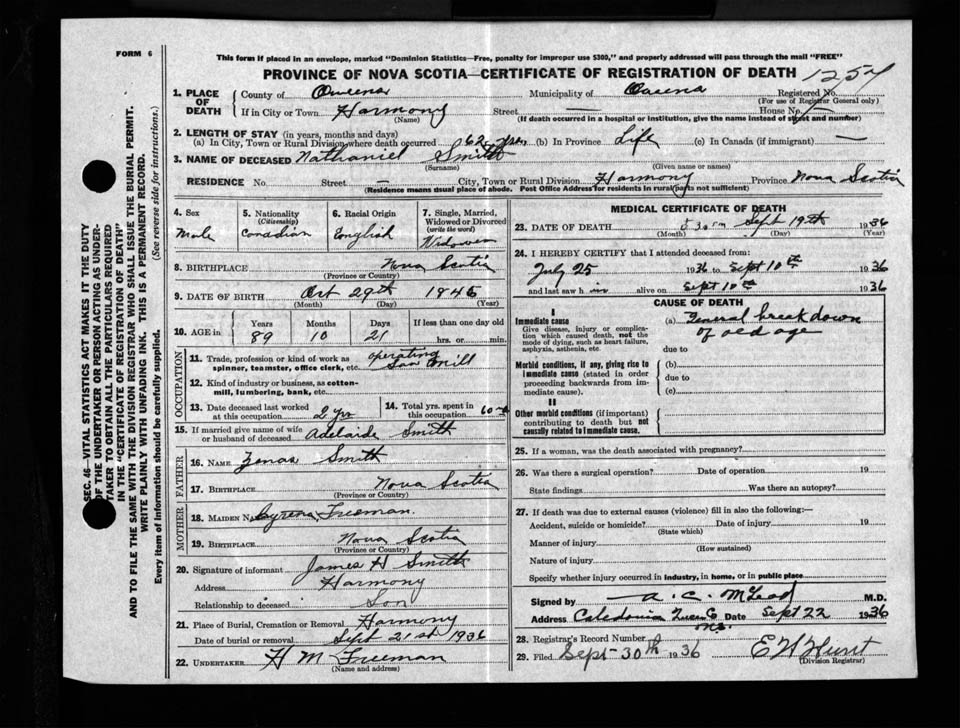 FORM 6
This form if placed in an envelope, marked "Dominion Statistics—Free, penalty for improper use $300," and properly addressed will pass through the mail "FREE"
PROVINCE OF NOVA SCOTIA—CERTIFICATE OF REGISTRATION OF DEATH 1254
1. PLACE OF DEATH County of Queens Municipality of Queens Registered No.
(For use of Registrar General only)
If in City or Town Harmony Street — House No.
(Name) (If death occurred in a hospital or institution, give the name instead of street and number)
2. LENGTH OF STAY (in years, months and days)
(a) In City, Town or Rural Division where death occurred 62 yrs. (b) In Province Life (c) In Canada (if immigrant) —
3. NAME OF DECEASED Nathaniel Smith
(Surname) (Given name or names)
RESIDENCE No. Street — City, Town or Rural Division Harmony Province Nova Scotia
(Residence means usual place of abode. Post Office Address for residents in rural parts not sufficient)
4. Sex Male
5. Nationality (Citizenship) Canadian
6. Racial Origin English
7. Single, Married, Widowed or Divorced (write the word) Widower
8. BIRTHPLACE Nova Scotia
(Province or Country)
9. DATE OF BIRTH Oct 29th 1846
(Month) (Day) (Year)
10. AGE in Years Months Days If less than one day old
89 10 21 hrs. or min.
OCCUPATION
11. Trade, profession or kind of work as spinner, teamster, office clerk, etc. operating Saw Mill
12. Kind of industry or business, as cotton-mill, lumbering, bank, etc.
13. Date deceased last worked at this occupation 2 yrs
14. Total yrs. spent in this occupation 60
15. If married give name of wife or husband of deceased Adelaide Smith
FATHER
16. NAME Zenas Smith
17. BIRTHPLACE Nova Scotia
(Province or Country)
MOTHER
18. MAIDEN NAME Cyrena Freeman.
19. BIRTHPLACE Nova Scotia
(Province or Country)
20. Signature of informant James H Smith
Address Harmony
Relationship to deceased Son
21. Place of Burial, Cremation or Removal Harmony
Date of burial or removal Sept 21st 1936
22. UNDERTAKER H M Freeman
(Name and address)
MEDICAL CERTIFICATE OF DEATH
23. DATE OF DEATH 5 30 Sept 19th 1936
(Month) (Day) (Year)
24. I HEREBY CERTIFY that I attended deceased from:
July 25 1936 to Sept 10th 1936
and last saw him alive on Sept 10th 1936
CAUSE OF DEATH
I
Immediate cause (a) General breakdown
Give disease, injury or complication which caused death, not the mode of dying, such as heart failure, asphyxia, asthenia, etc. of old age
due to
Morbid conditions, if any, giving rise to immediate cause (stated in order proceeding backwards from immediate cause). (b)
due to
(c)
II
Other morbid conditions (if important) contributing to death but not causally related to immediate cause.
25. If a woman, was the death associated with pregnancy?
26. Was there a surgical operation? Date of operation 19
State findings Was there an autopsy?
27. If death was due to external causes (violence) fill in also the following:—
Accident, suicide or homicide? Date of injury 19
(State which)
Manner of injury
(How sustained)
Nature of injury
Specify whether injury occurred in industry, in home, or in public place
Signed by A. C. McLeod M.D.
Address Caledonia Queens Co N.S. Date Sept 22 1936
28. Registrar's Record Number
29. Filed Sept 30th 1936 E W Hunt
(Division Registrar)
SEC. 46—VITAL STATISTICS ACT MAKES IT THE DUTY
OF THE UNDERTAKER OR PERSON ACTING AS UNDER-
TAKER TO OBTAIN ALL THE PARTICULARS REQUIRED
IN THE "CERTIFICATE OF REGISTRATION OF DEATH"
AND TO FILE THE SAME WITH THE DIVISION REGISTRAR WHO SHALL ISSUE THE BURIAL PERMIT.
WRITE PLAINLY WITH UNFADING INK. THIS IS A PERMANENT RECORD.
Every item of information should be carefully supplied. (See reverse side for instructions.)